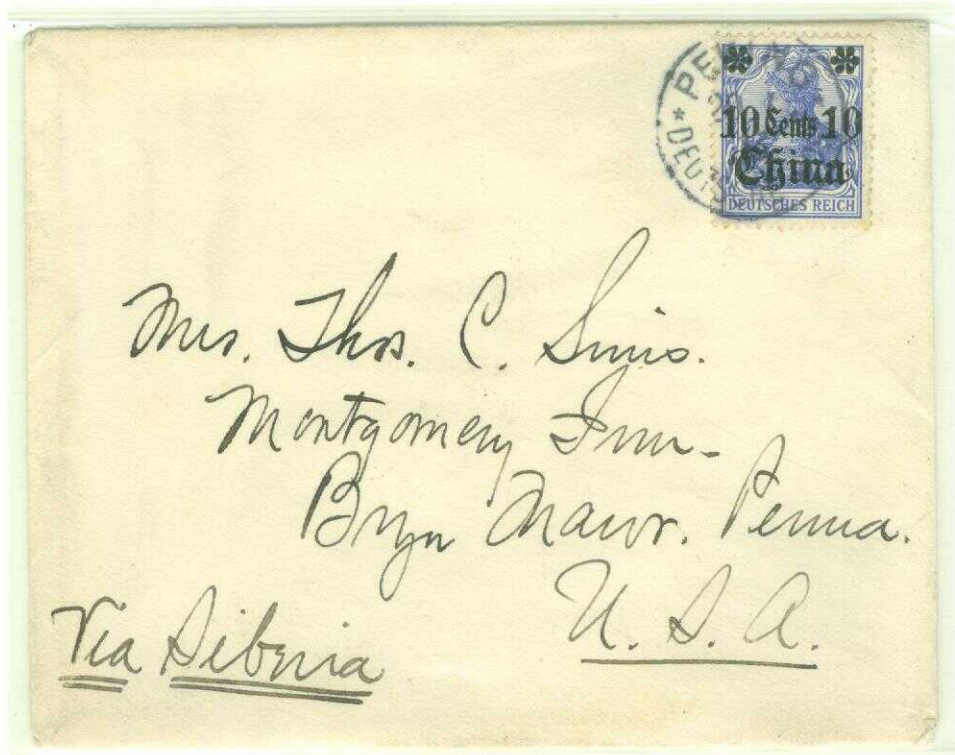 10 Cents 10
China
DEUTSCHES REICH
Mrs. Thos. C. Sims.
Montgomery Inn-
Bryn Mawr. Penna.
U. S. A.
Via Siberia